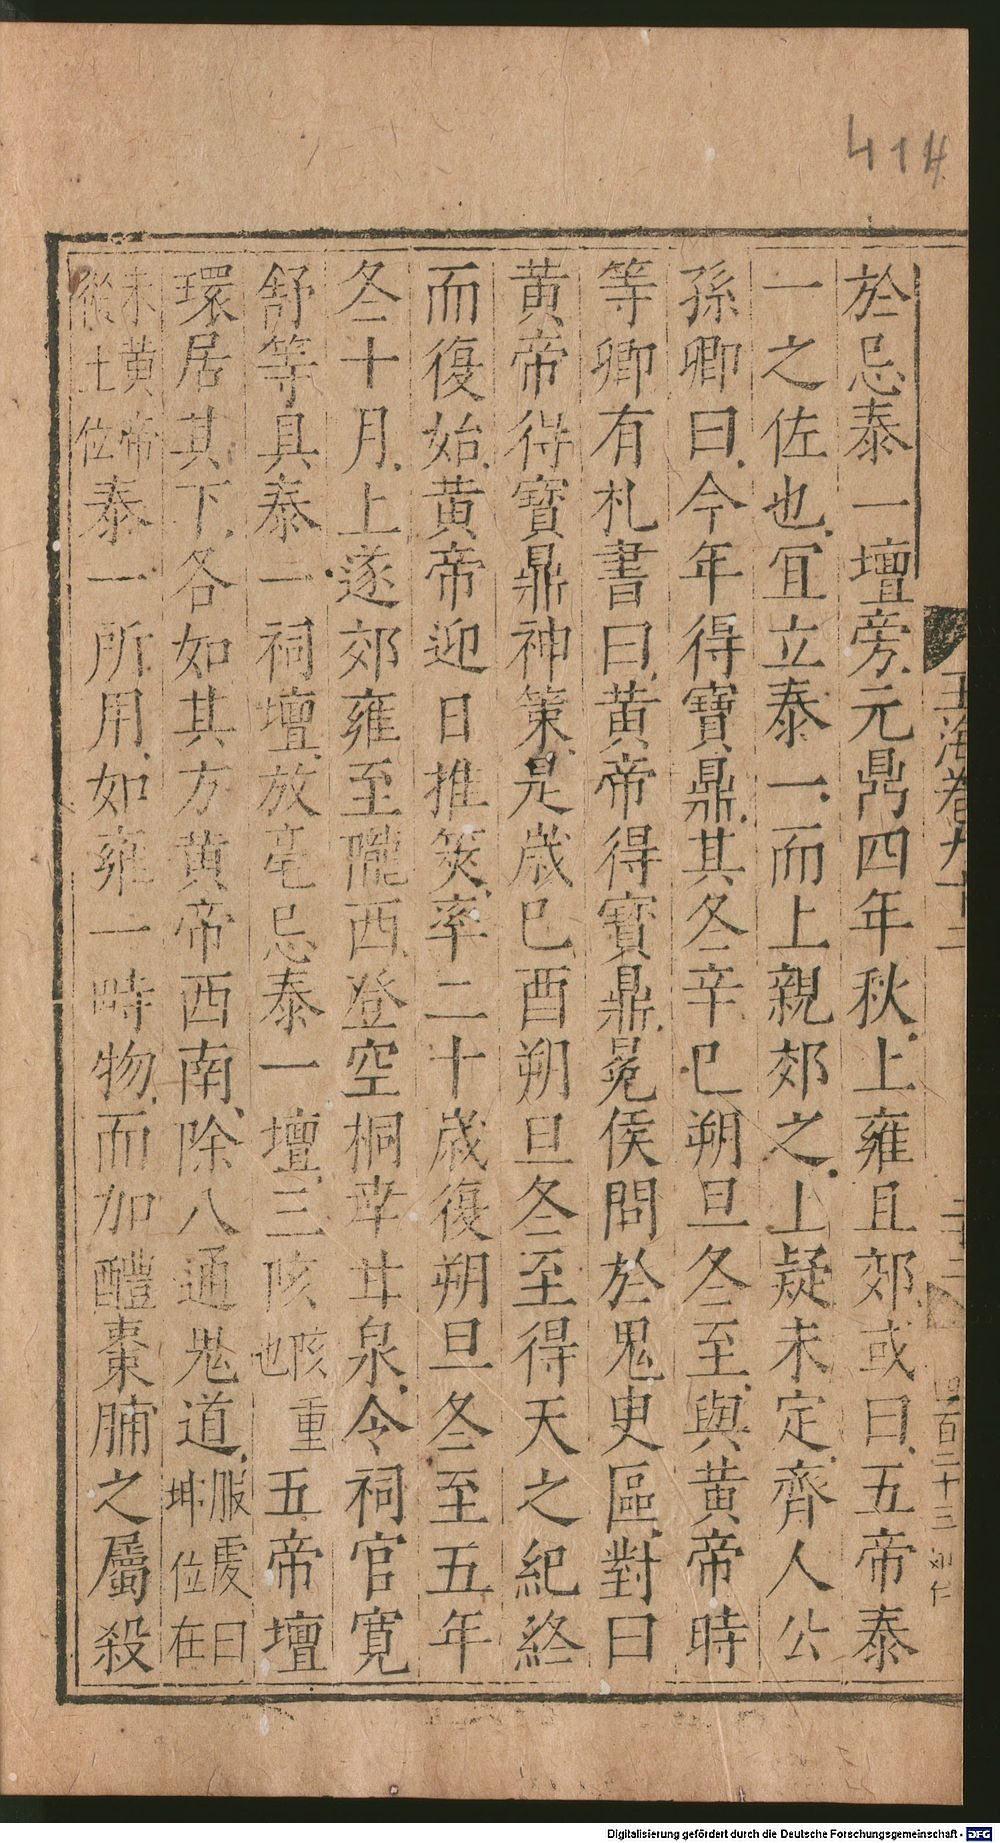 414
於忌泰一壇旁元鼎四年秋上雍且郊或曰五帝泰
一之佐也宜立泰一而上親郊之上疑未定齊人公
孫卿曰今年得寶鼎其冬辛巳朔旦冬至與黃帝時
等卿有札書曰黃帝得寶鼎冕侯問於鬼臾區對曰
黃帝得寶鼎神策是歲己酉朔旦冬至得天之紀終
而復始黃帝迎日推筴率二十歲復朔旦冬至五年
冬十月上遂郊雍至隴西登空桐幸甘泉令祠官寛
舒等具泰一祠壇放亳忌泰一壇三陔陔重也五帝壇
環居其下各如其方黃帝西南除八通鬼道服虔曰坤位在
未黃帝從土位泰一所用如雍一畤物而加醴棗脯之屬殺
玉海卷九十二
二十二
四百二十三
Digitalisierung gefördert durch die Deutsche Forschungsgemeinschaft - DFG